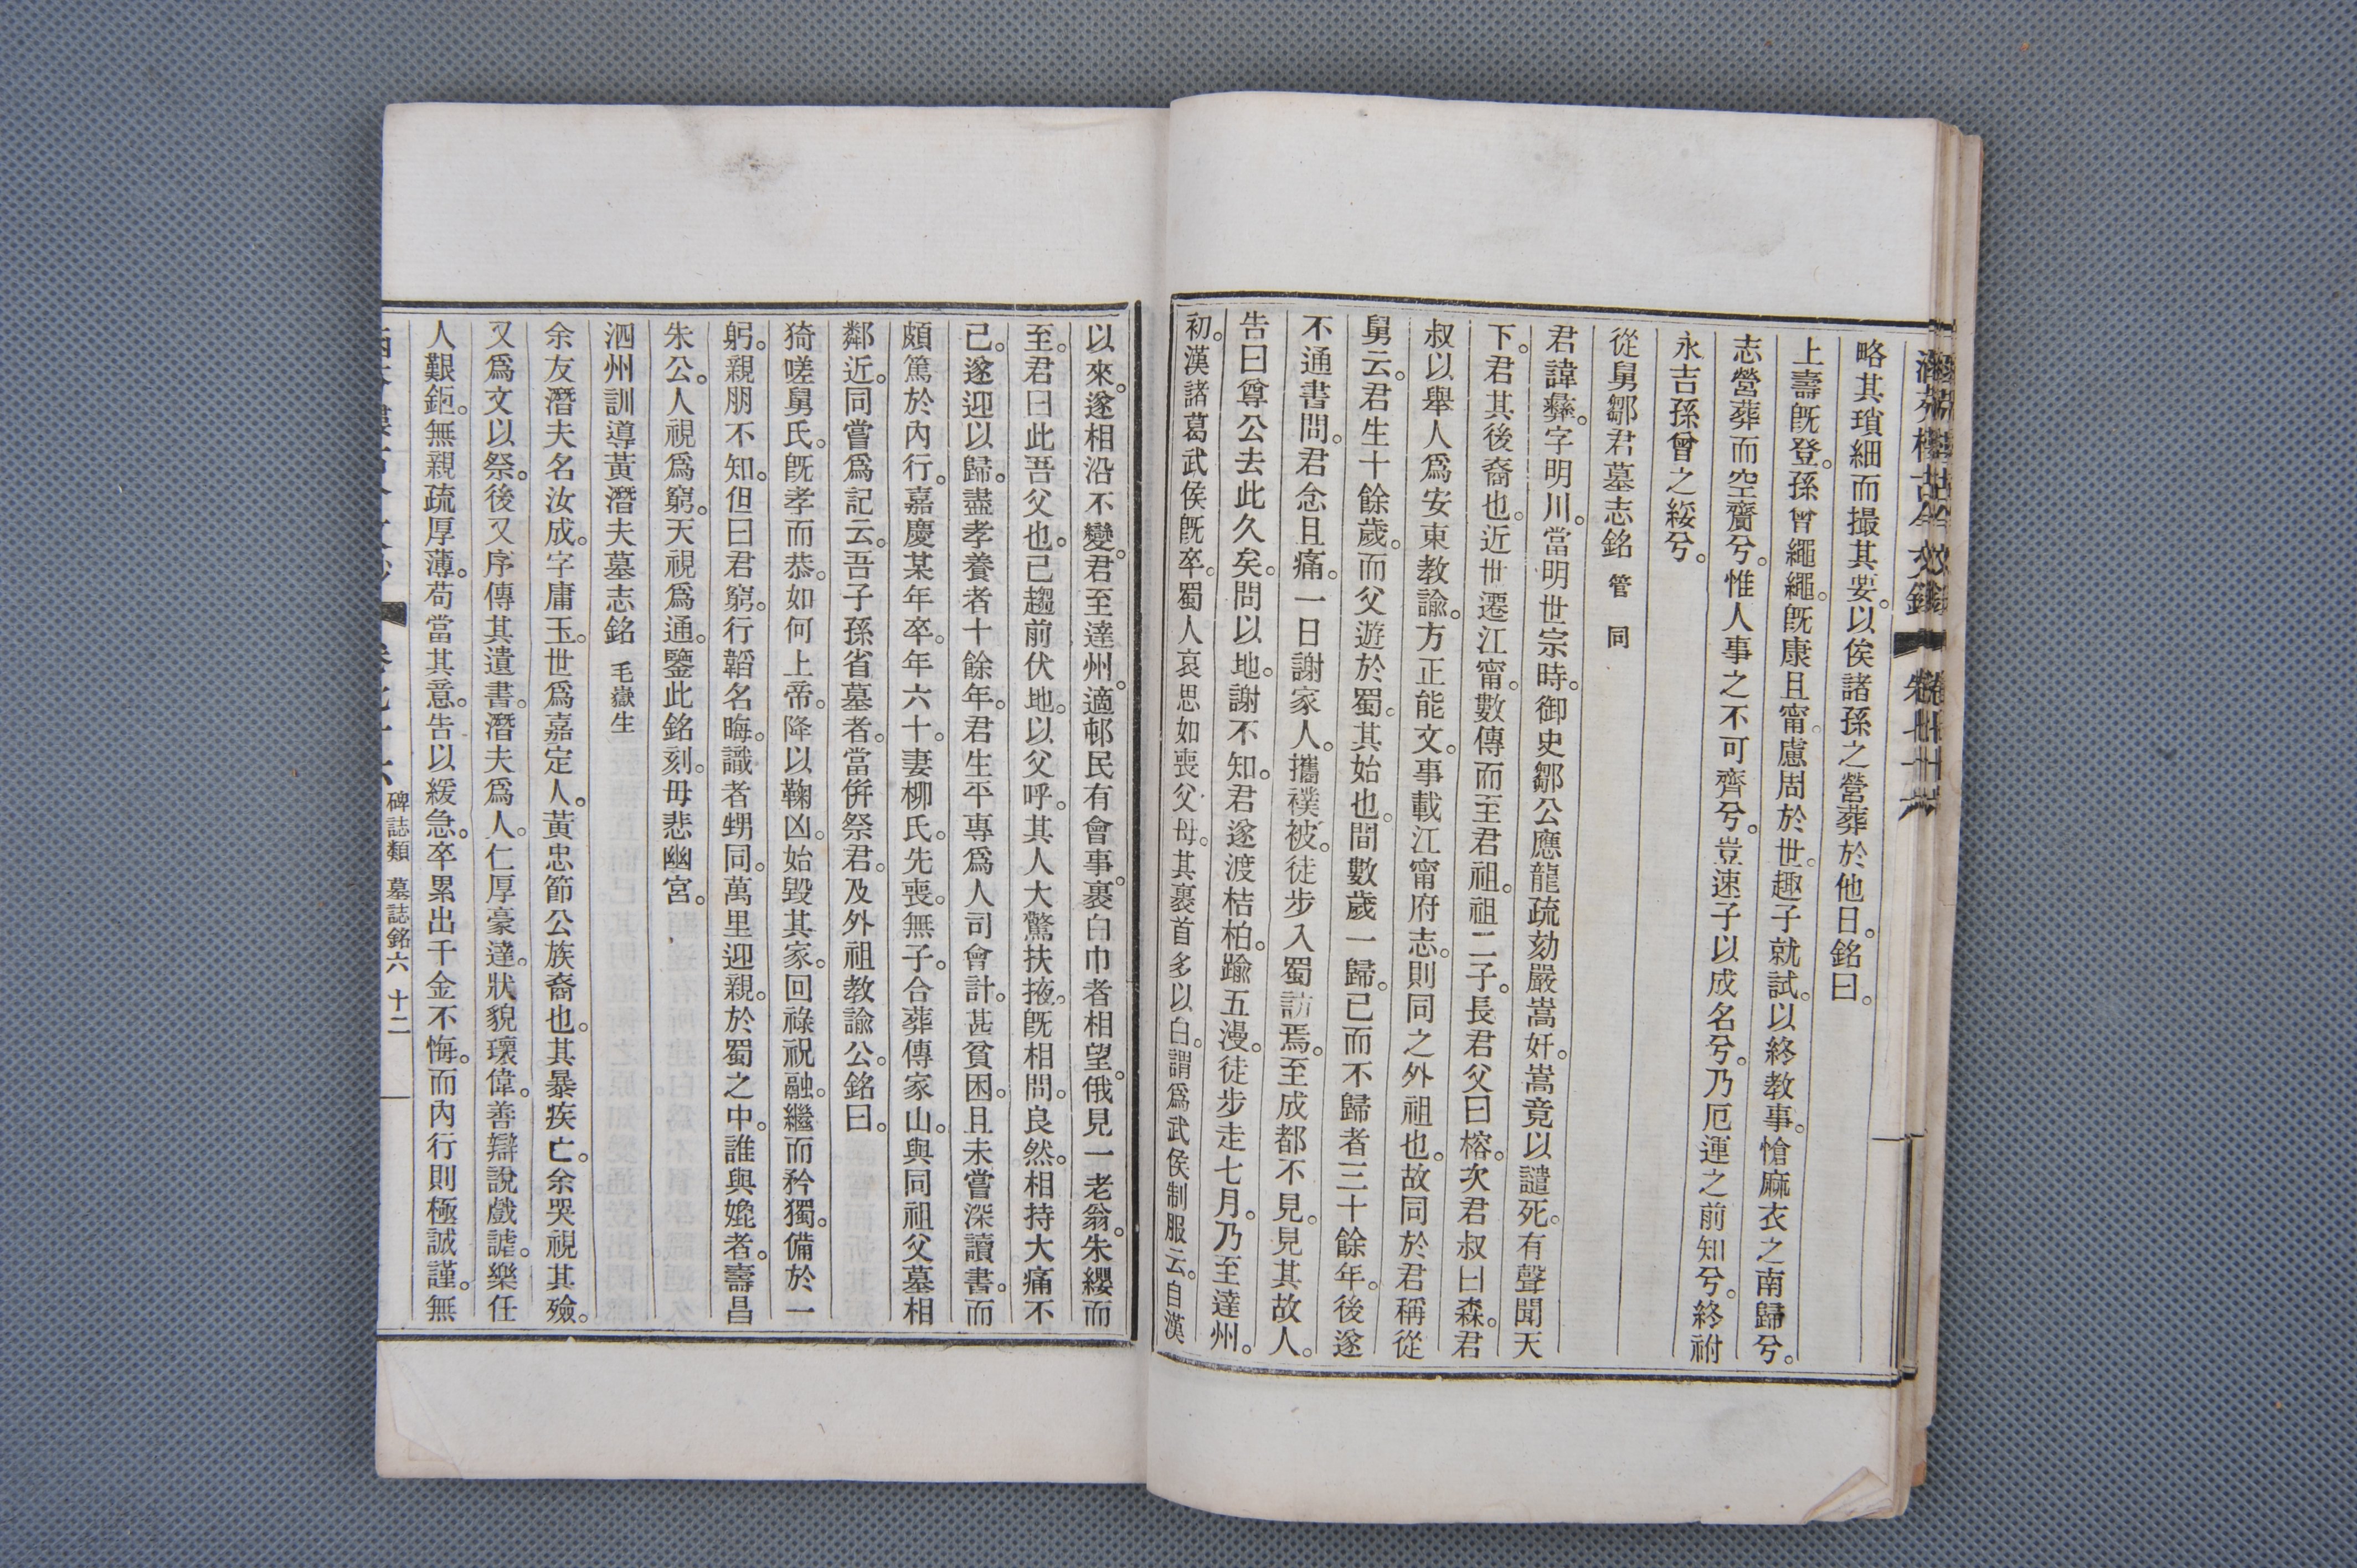 略其瑣細而撮其要。以俟諸孫之營葬於他日。銘曰。
上壽旣登。孫曾繩繩。旣康且甯。慮周於世。趣子就試。以終教事。愴麻衣之南歸兮。
志營葬而空齎兮。惟人事之不可齊兮。豈速子以成名兮。乃厄運之前知兮。終祔
永吉孫曾之綏兮。
從舅鄒君墓志銘 管同
君諱彜。字明川。當明世宗時。御史鄒公應龍疏劾嚴嵩奸。嵩竟以譴死。有聲聞天
下。君其後裔也。近世遷江甯。數傳而至君祖。祖二子。長君父曰榕。次君叔曰森。君
叔以舉人爲安東教諭。方正能文。事載江甯府志。則同之外祖也。故同於君稱從
舅云。君生十餘歲。而父遊於蜀。其始也。間數歲一歸。已而不歸者三十餘年。後遂
不通書問。君念且痛。一日謝家人。攜襆被。徒步入蜀訪焉。至成都不見。見其故人。
告曰尊公去此久矣。問以地。謝不知。君遂渡桔柏。踰五漫。徒步走七月。乃至達州。
初。漢諸葛武侯旣卒。蜀人哀思如喪父母。其裹首多以白。謂爲武侯制服云。自漢
以來。遂相沿不變。君至達州。適邨民有會事。裹白巾者相望。俄見一老翁。朱纓而
至。君曰此吾父也。已趨前伏地。以父呼。其人大驚扶掖。旣相問。良然。相持大痛不
已。遂迎以歸。盡孝養者十餘年。君生平專爲人司會計。甚貧困。且未嘗深讀書。而
頗篤於內行。嘉慶某年卒。年六十。妻柳氏。先喪。無子。合葬傳家山。與同祖父墓相
鄰近。同嘗爲記云。吾子孫省墓者。當併祭君。及外祖教諭公。銘曰。
猗嗟舅氏。旣孝而恭。如何上帝。降以鞠凶。始毀其家。回祿祝融。繼而矜獨。備於一
躬。親朋不知。但曰君窮。行韜名晦。識者甥同。萬里迎親。於蜀之中。誰與媲者。壽昌
朱公。人視爲窮。天視爲通。鑒此銘刻。毋悲幽宮。
泗州訓導黃潛夫墓志銘 毛嶽生
余友潛夫名汝成。字庸玉。世爲嘉定人。黃忠節公族裔也。其暴疾亡。余哭視其殮。
又爲文以祭。後又序傳其遺書。潛夫爲人。仁厚豪達。狀貌瓌偉。善辯說戲謔。樂任
人艱鉅。無親疏厚薄。苟當其意。告以緩急。卒累出千金不悔。而內行則極誠謹。無
碑誌類 墓誌銘六 十二